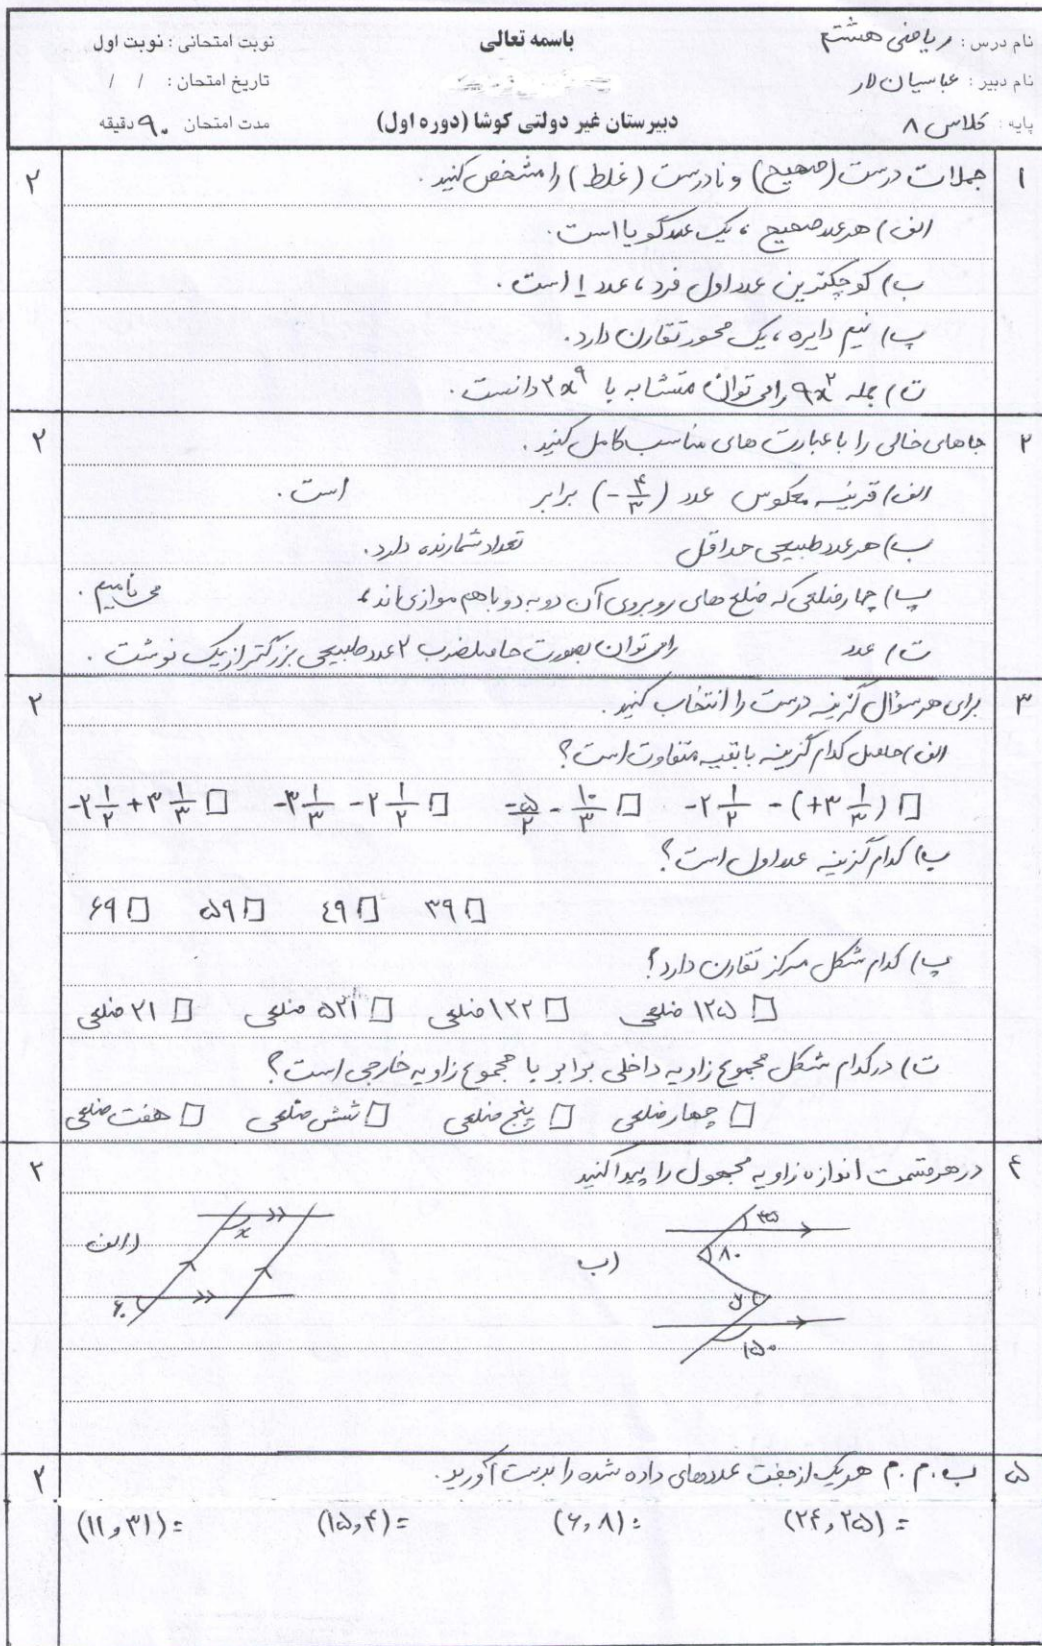 نام درس : ریاضی هشتم
باسمه تعالی
نوبت امتحانی : نوبت اول
نام دبیر : عباسیان لار
تاریخ امتحان : / /
پایه : کلاس ۸
دبیرستان غیر دولتی کوشا (دوره اول)
مدت امتحان ۹۰ دقیقه
۱ جملات درست (صحیح) و نادرست (غلط) را مشخص کنید . ۲
الف) هر عدد صحیح ، یک عدد گویا است.
ب) کوچکترین عدد اول فرد ، عدد ۱ است .
پ) نیم دایره ، یک محور تقارن دارد.
ت) جمله ۹x^۲ را می توان متشابه با ۲x^۹ دانست .
۲ جاهای خالی را با عبارت های مناسب کامل کنید . ۲
الف) قرینه معکوس عدد (-۴/۳) برابر است .
ب) هر عدد طبیعی حداقل تعداد شمارنده دارد.
پ) چهارضلعی که ضلع های روبروی آن دو به دو باهم موازی اند ، می نامیم .
ت) عدد را می توان بصورت حاصلضرب ۲ عدد طبیعی بزرگتر از یک نوشت .
۳ برای هر سؤال گزینه درست را انتخاب کنید . ۲
الف) حاصل کدام گزینه با بقیه متفاوت است؟
□ -۲ ۱/۲ - (+۳ ۱/۳) □ -۵/۲ - ۱۰/۳ □ -۳ ۱/۳ - ۲ ۱/۲ □ -۲ ۱/۲ + ۳ ۱/۳
ب) کدام گزینه عدد اول است؟
□ ۳۹ □ ۴۹ □ ۵۹ □ ۶۹
پ) کدام شکل مرکز تقارن دارد؟
□ ۱۲۵ ضلعی □ ۱۲۲ ضلعی □ ۵۲۱ ضلعی □ ۲۱ ضلعی
ت) در کدام شکل مجموع زاویه داخلی برابر با مجموع زاویه خارجی است؟
□ چهار ضلعی □ پنج ضلعی □ شش ضلعی □ هفت ضلعی
۴ در هر قسمت اندازه زاویه مجهول را پیدا کنید ۲
الف)
x
۶۰
ب)
۳۵
۸۰
y
۱۵۰
۵ ب.م.م هر یک از جفت عددهای داده شده را بدست آورید . ۲
(۲۴ و ۲۵) = (۶ و ۸) : (۱۵ و ۴) = (۱۱ و ۳۱) =